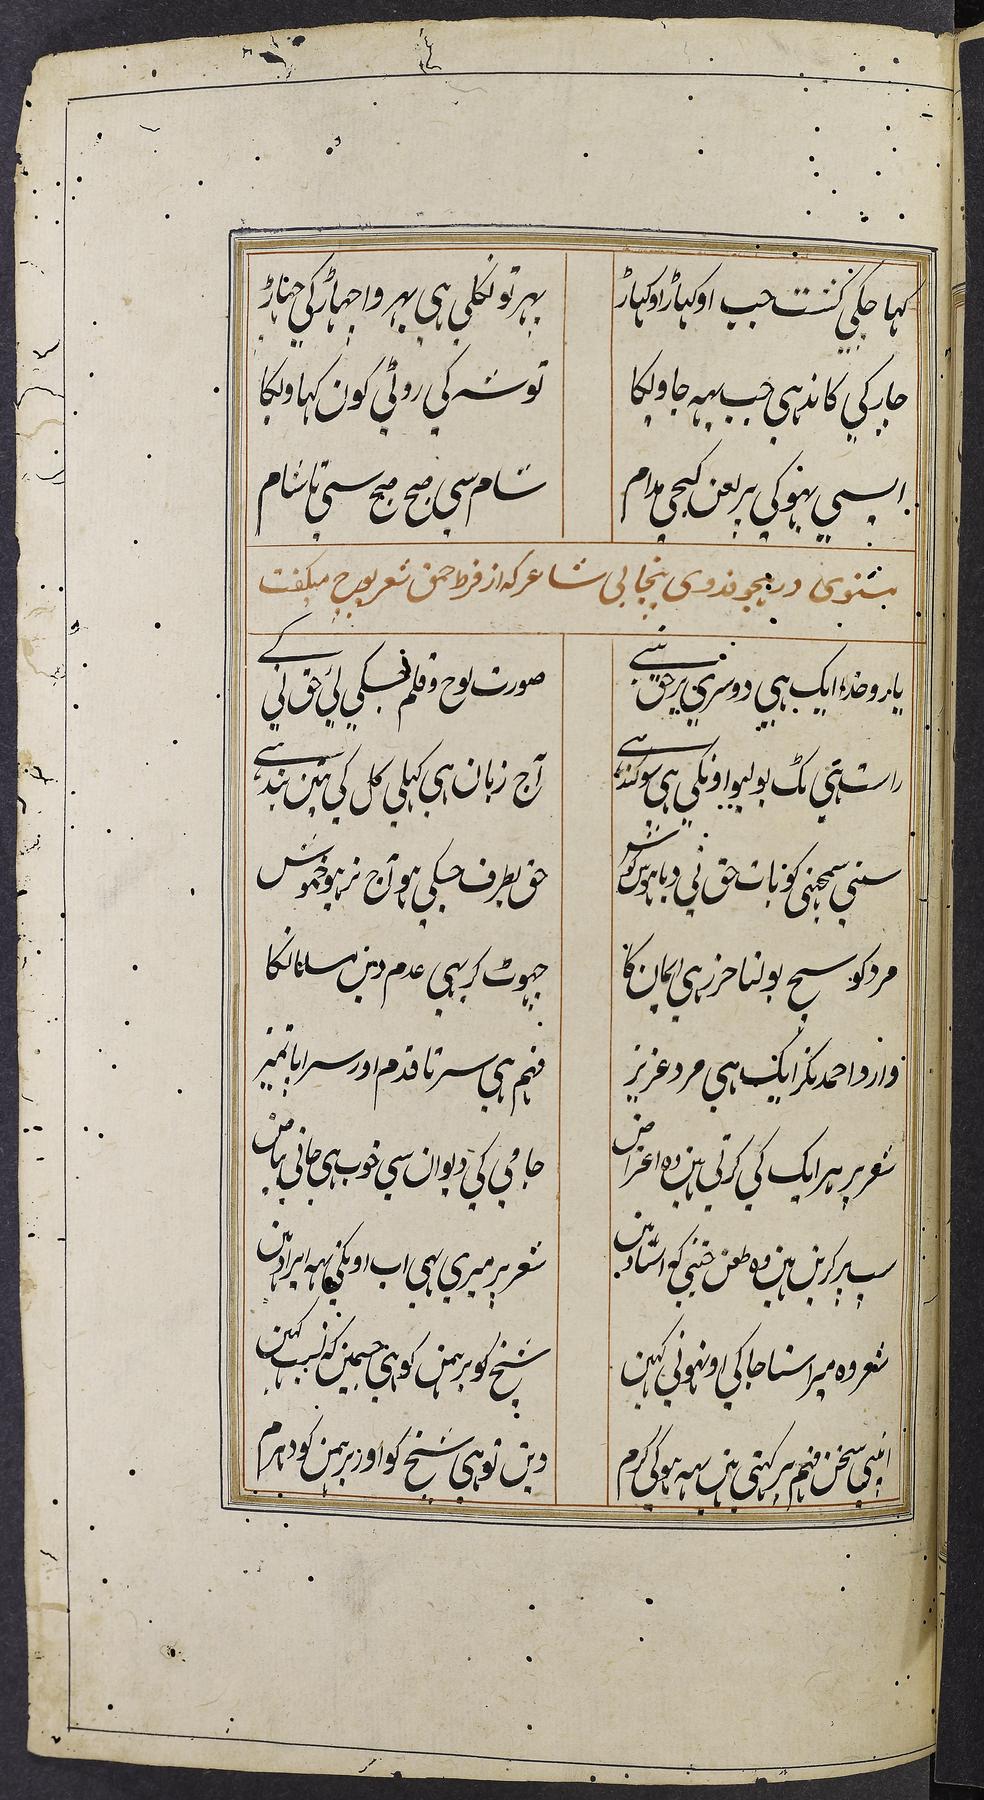 کہا چکی گشت جب اوکہاڑ اوکہاڑ	پہر تو نکلی ہی پہر وا جہاڑ کی جہاڑ
چار کی کاندہی جب یہہ جاویکا	توشہ کی روٹی کون کہاویکا
ایسی بہٹو کی پر لعن کیجی مدام	شام سی صبح صبح ستی تا شام
مثنوی در ہجو فدوی پنجابی شاعر که از فرط حمق شعر پوچ میکفت
یارو خدا ایک ہی دوسری برحق نبی	صورت لوح و قلم جسکی لئی حق نی کے
راست ہی ٹک بولیو اونکی ہی سوکند ہے	آج زبان ہی کہلی کل کی تئین بند ہے
سننی سمجہنی کو بات حق نی دیا ہوش گوش	حق بطرف جسکی ہو آج نہ ہو خموش
مرد کو سچ بولنا حرز ہی ایمان کا	جہوٹ کر ہی عدم دین مسلمانکا
وارد احمد نکر ایک ہی مرد عزیز	فہم ہی سر تا قدم اور سراپا تمیز
شعر پر ہر ایک کی کرتی ہین وہ اعتراض	جامی کی دیوان سی خوب ہی جانی بیاض
سب پر کرین ہین وہ طعن جتنی کو استاد ہین	شعر پر میری بہی اب اونکی یہہ ایراد ہین
شعر وہ میرا سنا جا کی اونہونی کہین	شیخ کو برہمن کو ہی جسمین کہ نسبت کہین
اپنی سخن فہم پر کہتی ہین یہہ ہو کی گرم	دین تو ہی شیخ کو اور برہمن کو دہرم